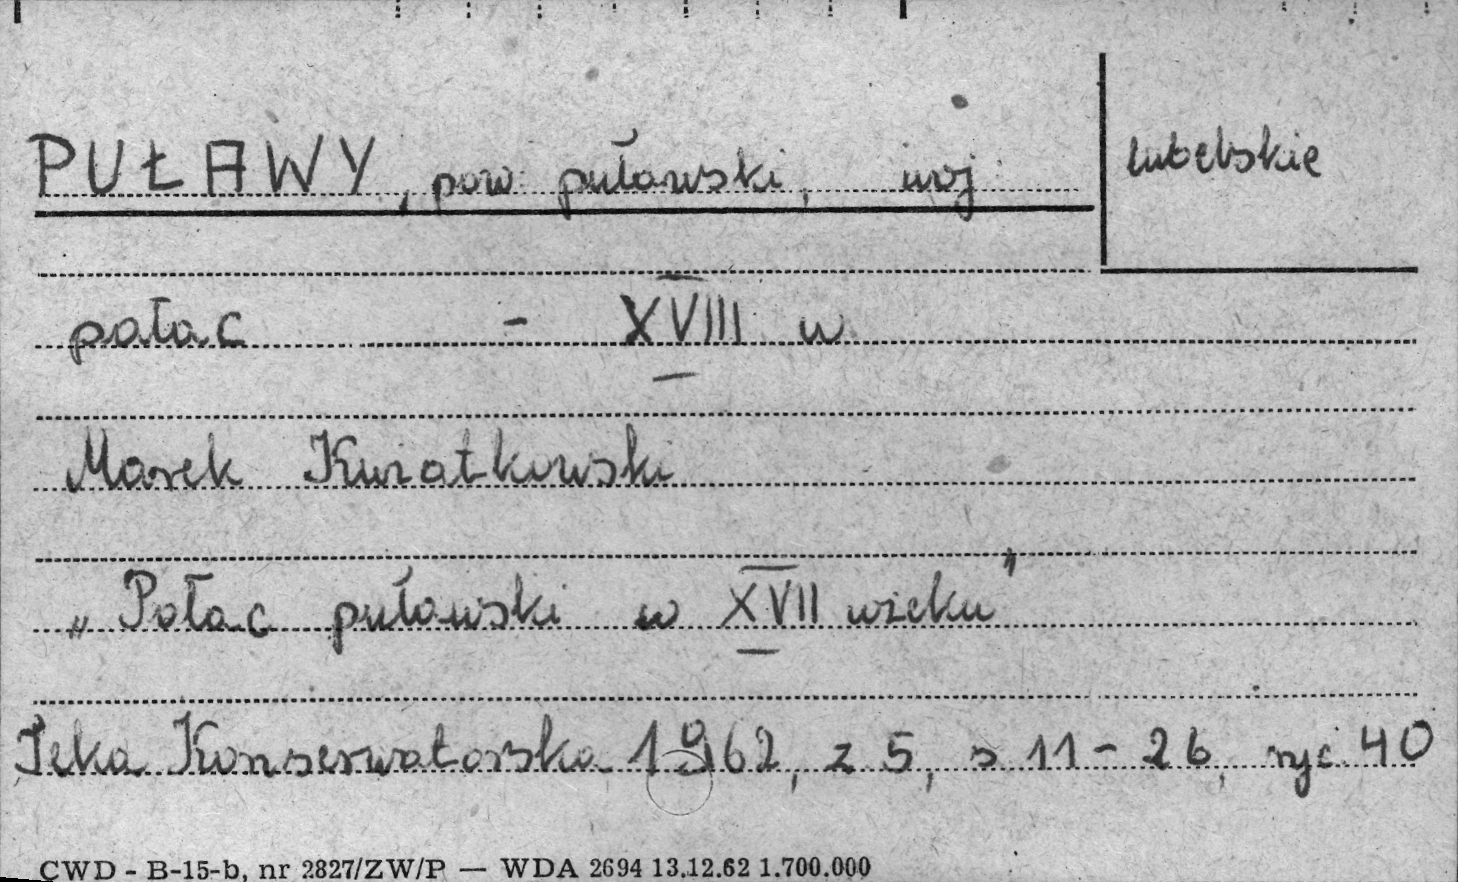 PUŁAWY, pow. puławski, woj. lubelskie
pałac - XVIII w
Marek Kwiatkowski
„Pałac puławski w XVII wieku"
Teka Konserwatorska 1962, z 5, s 11-26, ryc 40
CWD - B-15-b, nr 2827/ZW/P — WDA 2694 13.12.62 1.700.000